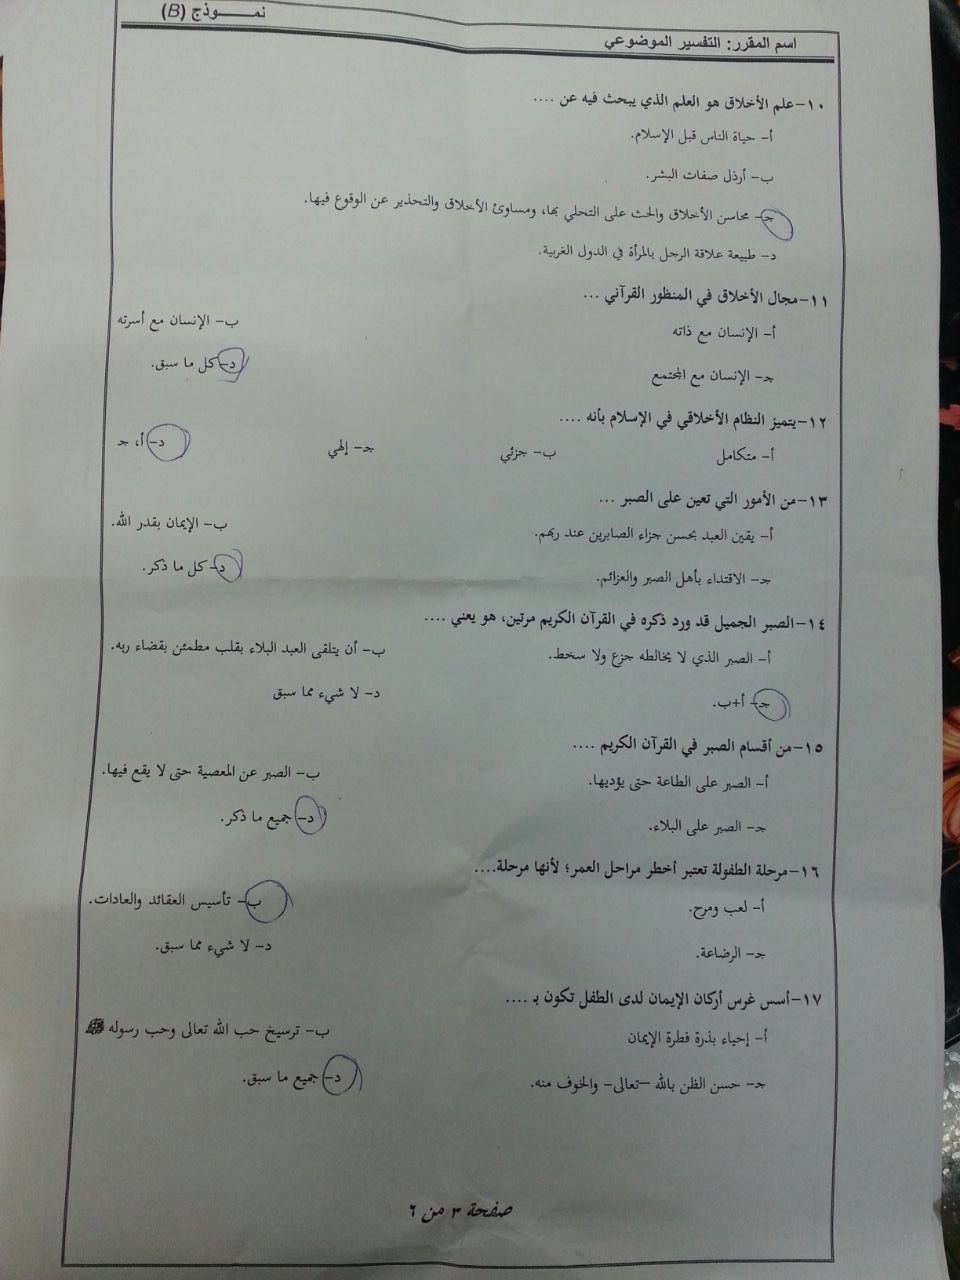 نمـــــوذج (B)
اسم المقرر: التفسير الموضوعي
١٠-علم الأخلاق هو العلم الذي يبحث فيه عن ....
أ- حياة الناس قبل الإسلام.
ب- أرذل صفات البشر.
جـ- محاسن الأخلاق والحث على التحلي بها، ومساوئ الأخلاق والتحذير عن الوقوع فيها.
د- طبيعة علاقة الرجل بالمرأة في الدول الغربية.
١١-مجال الأخلاق في المنظور القرآني ...
أ- الإنسان مع ذاته ب- الإنسان مع أسرته
جـ- الإنسان مع المجتمع د- كل ما سبق.
١٢-يتميز النظام الأخلاقي في الإسلام بأنه ....
أ- متكامل ب- جزئي جـ- إلهي د- أ، جـ
١٣-من الأمور التي تعين على الصبر ...
أ- يقين العبد بحسن جزاء الصابرين عند ربهم. ب- الإيمان بقدر الله.
جـ- الاقتداء بأهل الصبر والعزائم. د- كل ما ذكر.
١٤-الصبر الجميل قد ورد ذكره في القرآن الكريم مرتين، هو يعني ....
أ- الصبر الذي لا يخالطه جزع ولا سخط. ب- أن يتلقى العبد البلاء بقلب مطمئن بقضاء ربه.
جـ- أ+ب. د- لا شيء مما سبق
١٥-من أقسام الصبر في القرآن الكريم ....
أ- الصبر على الطاعة حتى يؤديها. ب- الصبر عن المعصية حتى لا يقع فيها.
جـ- الصبر على البلاء. د- جميع ما ذكر.
١٦-مرحلة الطفولة تعتبر أخطر مراحل العمر؛ لأنها مرحلة....
أ- لعب ومرح. ب- تأسيس العقائد والعادات.
جـ- الرضاعة. د- لا شيء مما سبق.
١٧-أسس غرس أركان الإيمان لدى الطفل تكون بـ ....
أ- إحياء بذرة فطرة الإيمان ب- ترسيخ حب الله تعالى وحب رسوله ﷺ
جـ- حسن الظن بالله –تعالى- والخوف منه. د- جميع ما سبق.
صفحة ٣ من ٦